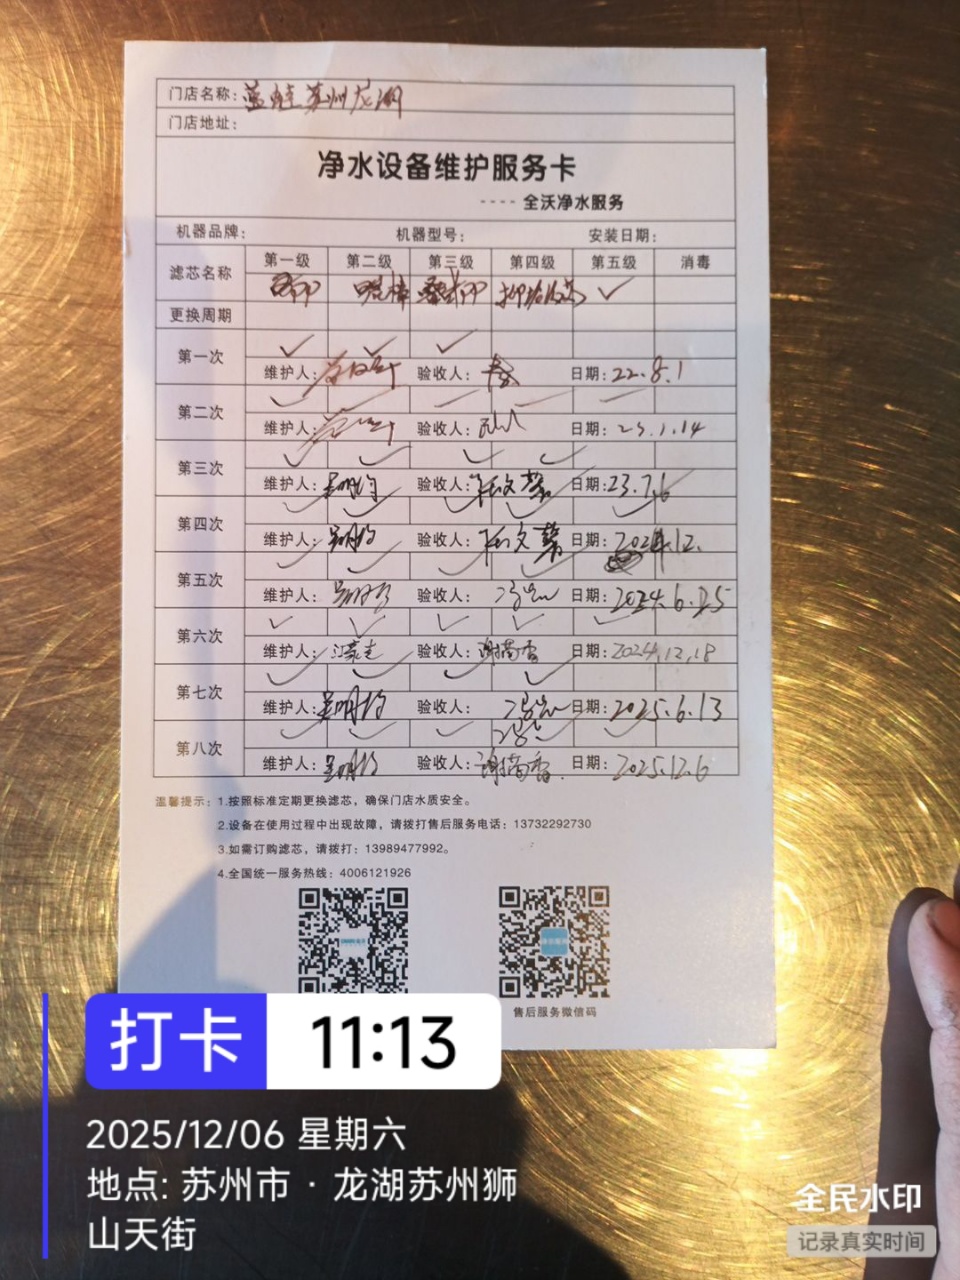 门店名称：蓝蛙苏州龙湖
门店地址：
净水设备维护服务卡
---- 全沃净水服务
机器品牌： 机器型号： 安装日期：
滤芯名称 第一级 第二级 第三级 第四级 第五级 消毒
✓
更换周期
第一次 ✓ ✓ ✓
维护人： 验收人： 日期：22.8.1
第二次
维护人： 验收人： 日期：23.1.14
第三次 ✓ ✓ ✓ ✓
维护人：吴明 验收人： 日期：23.7.6
第四次
维护人：吴明 验收人： 日期：2024.12.
第五次
维护人：吴明 验收人：冯 日期：2024.6.25
第六次 ✓ ✓ ✓ ✓ ✓
维护人：江 验收人：谢 香 日期：2024.12.18
第七次
维护人：吴明 验收人：冯 日期：2025.6.13
第八次
维护人：吴明 验收人：谢 香 日期：2025.12.6
温馨提示：1.按照标准定期更换滤芯，确保门店水质安全。
2.设备在使用过程中出现故障，请拨打售后服务电话：13732292730
3.如需订购滤芯，请拨打：13989477992。
4.全国统一服务热线：4006121926
售后服务微信码
打卡 11:13
2025/12/06 星期六
地点: 苏州市 · 龙湖苏州狮
山天街
全民水印
记录真实时间